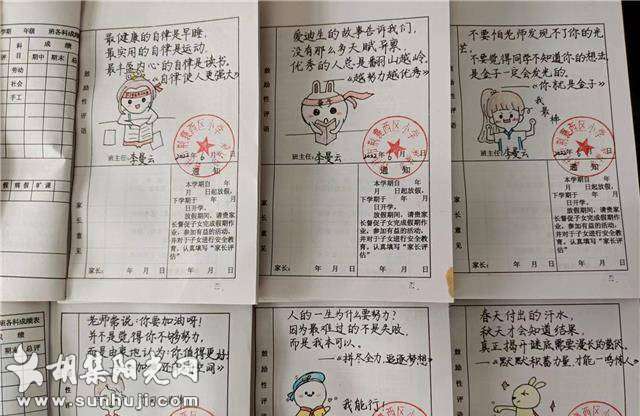 学期
年级
班各科成绩表
科
成绩
期中
期末
总评
劳动
社会
手工
病假
旷课
鼓励性评语
最健康的自律是早睡,
最实用的自律是运动,
心的自律是读书。
—《自律使人更强大》
班主任:李曼云
2022年6月
通知
本学期自 年
月 日起放假,
下学期于 年 月
日开学。
放假期间,请贵家
长督促子女完成假期作
业,参加有益的活动,
并对于子女进行安全教
育,认真填写“家长评
估”
家长意见
家长: 年 月 日
鼓励性评语
爱迪生的故事告诉我们,
没有那么多天赋异禀,
优秀的人总是翻山越岭。
—《越努力越优秀》
班主任:李曼云
2022年6月
通知
本学期自 年
月 日起放假,
下学期于 年 月
日开学。
放假期间,请贵家
长督促子女完成假期作
业,参加有益的活动,
并对于子女进行安全教
育,认真填写“家长评
估”
家长意见
家长: 年 月 日
鼓励性评语
不要怕老师发现不了你的光
芒,
不要觉得同学不知道你的想法,
是金子一定会发光的。
—《你就是金子》
我最棒
西区小学
班主任:李曼云
2022年6月
通知
本学期自 年
月 日起放假,
下学期于 年 月
日开学。
放假期间,请贵家
长督促子女完成假期作
业,参加有益的活动,
并对于子女进行安全教
育,认真填写“家长评
估”
家长意见
家长: 年 月 日
班各科成绩表
老师常说:你要加油呀!
并不是觉得你不够努力,
而是由衷地认为:你值得更好
空间》
鼓励性评语
人的一生为什么要努力?
因为最难过的不是失败,
而是我本可以。
—《拼尽全力,追逐梦想》
我能行!
鼓励性评语
春天付出的汗水,
秋天才会知道结果,
真正揭开谜底需要漫长的夏天。
—《默默积蓄力量,才能一鸣惊人》
胡集阳光网
www.sunhuji.com